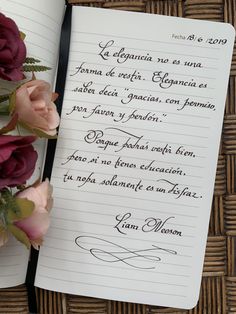 Fecha 18/6/2019
La elegancia no es una
forma de vestir. Elegancia es
saber decir "gracias, con permiso,
por favor y perdón".
Porque podrás vestir bien,
pero si no tienes educación,
tu ropa solamente es un disfraz.
Liam Neeson